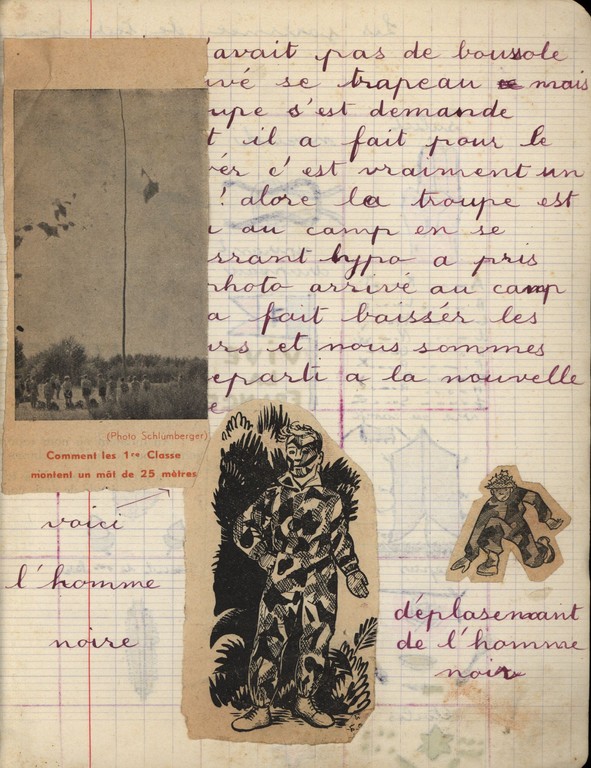 'avait pas de boussole
vé se trapeau mais
upe s'est demande
t il a fait pour le
vér c'est vraiment un
! alore la troupe est
i au camp en se
ssant hypo a pris
photo arrivé au camp
a fait baissér les
urs et nous sommes
eparti a la nouvelle
e
(Photo Schlumberger)
Comment les 1re Classe
montent un mât de 25 mètres
voici
l'homme
noire
déplasemant
de l'homme
noir